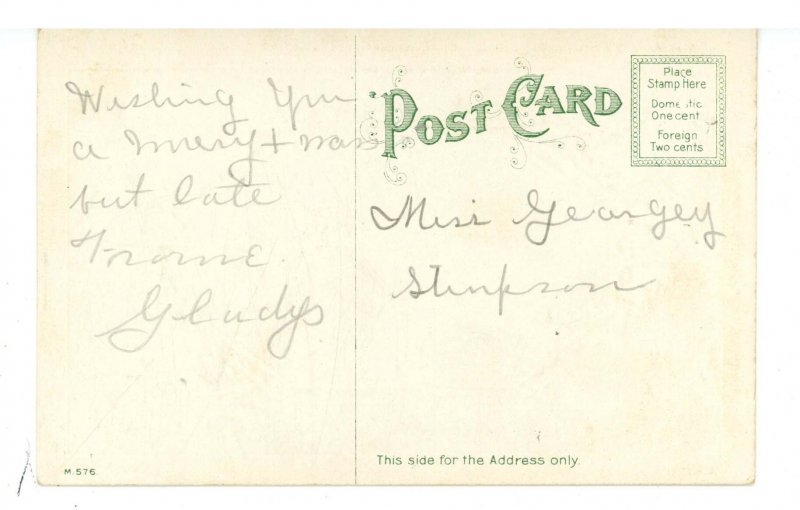 Wishing You
a Merry +mas
but late
Frome
Gladys
POST CARD
Place
Stamp Here
Domestic
One cent
Foreign
Two cents
Miss Georgey
Stimpson
This side for the Address only.
M.576